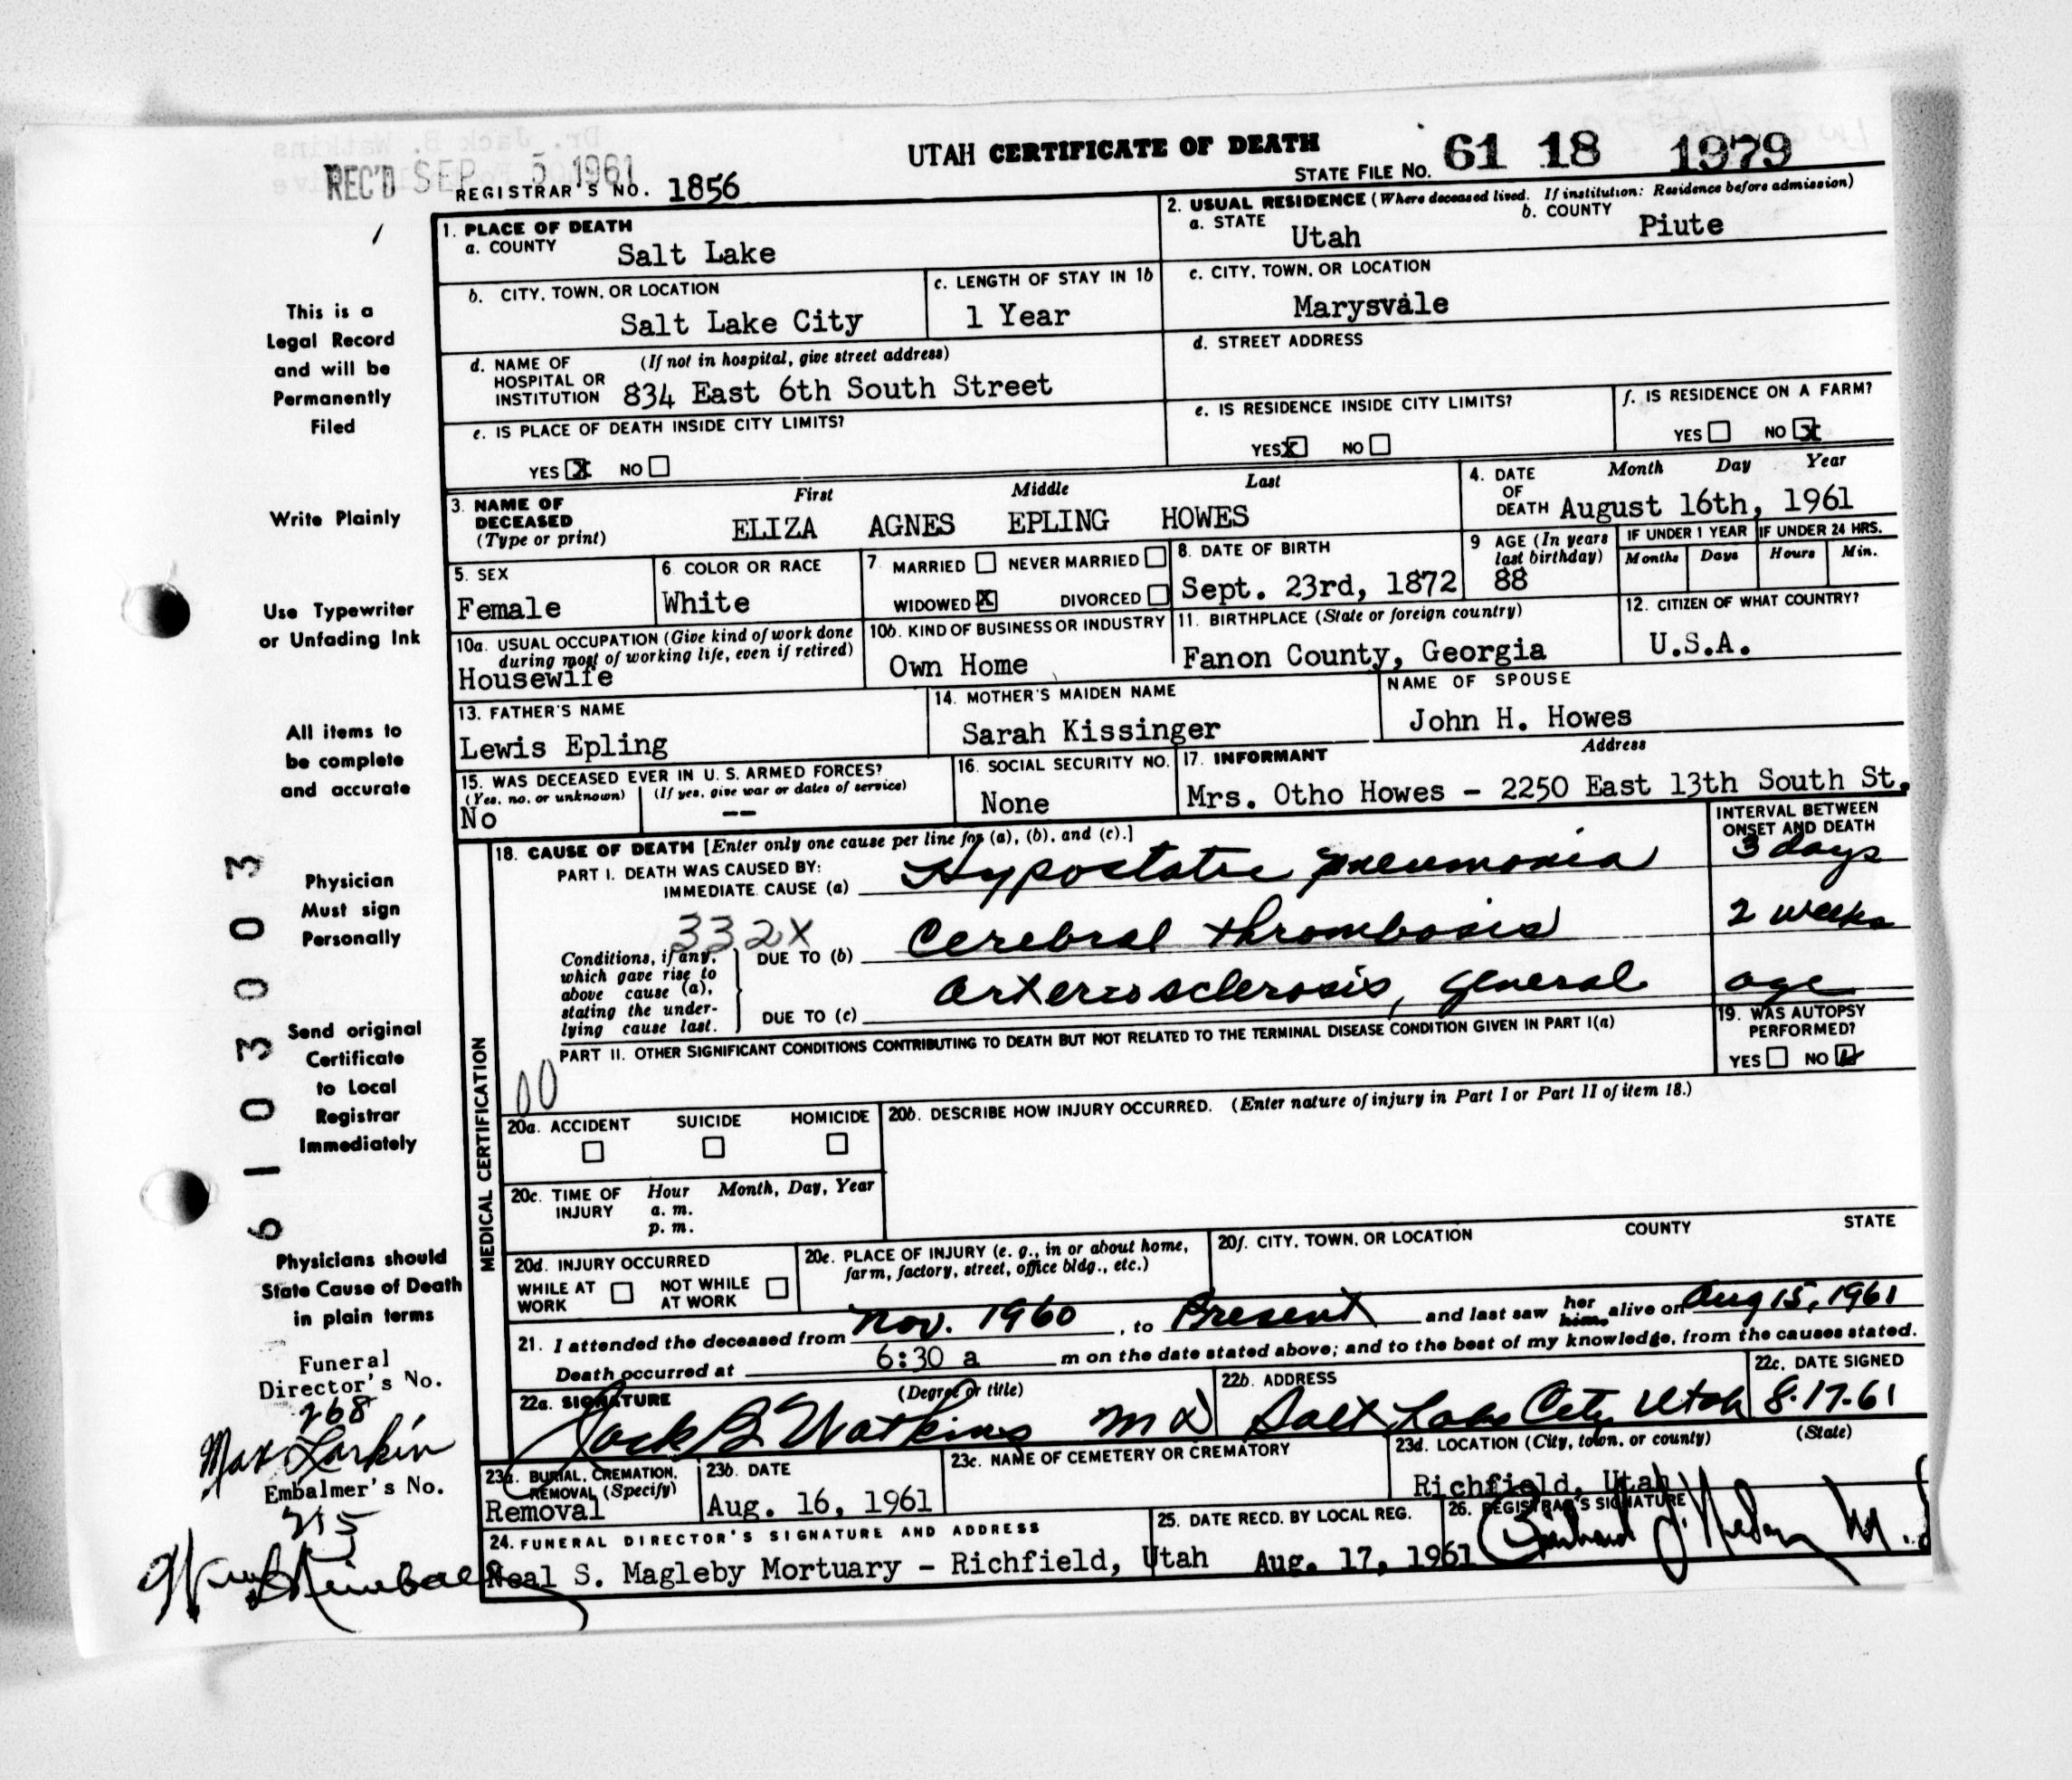 UTAH CERTIFICATE OF DEATH
STATE FILE No. 61 18 1979
REC'D SEP 5 1961
REGISTRAR'S NO. 1856
This is a
Legal Record
and will be
Permanently
Filed
Write Plainly
Use Typewriter
or Unfading Ink
All items to
be complete
and accurate
Physician
Must sign
Personally
Send original
Certificate
to Local
Registrar
Immediately
Physicians should
State Cause of Death
in plain terms
Funeral
Director's No.
268
Max Larkin
Embalmer's No.
215
61 03003
1. PLACE OF DEATH
a. COUNTY Salt Lake
b. CITY, TOWN, OR LOCATION
Salt Lake City
c. LENGTH OF STAY IN 1b
1 Year
d. NAME OF HOSPITAL OR INSTITUTION (If not in hospital, give street address)
834 East 6th South Street
e. IS PLACE OF DEATH INSIDE CITY LIMITS?
YES X NO
2. USUAL RESIDENCE (Where deceased lived. If institution: Residence before admission)
a. STATE Utah
b. COUNTY Piute
c. CITY, TOWN, OR LOCATION
Marysvale
d. STREET ADDRESS
e. IS RESIDENCE INSIDE CITY LIMITS?
YES X NO
f. IS RESIDENCE ON A FARM?
YES NO X
3. NAME OF DECEASED (Type or print)
First Middle Last
ELIZA AGNES EPLING HOWES
4. DATE OF DEATH
Month Day Year
August 16th, 1961
5. SEX
Female
6. COLOR OR RACE
White
7. MARRIED NEVER MARRIED
WIDOWED X DIVORCED
8. DATE OF BIRTH
Sept. 23rd, 1872
9 AGE (In years last birthday)
88
IF UNDER 1 YEAR
Months Days
IF UNDER 24 HRS.
Hours Min.
10a. USUAL OCCUPATION (Give kind of work done during most of working life, even if retired)
Housewife
10b. KIND OF BUSINESS OR INDUSTRY
Own Home
11. BIRTHPLACE (State or foreign country)
Fanon County, Georgia
12. CITIZEN OF WHAT COUNTRY?
U.S.A.
13. FATHER'S NAME
Lewis Epling
14. MOTHER'S MAIDEN NAME
Sarah Kissinger
NAME OF SPOUSE
John H. Howes
15. WAS DECEASED EVER IN U. S. ARMED FORCES?
(Yes, no, or unknown) (If yes, give war or dates of service)
No --
16. SOCIAL SECURITY NO.
None
17. INFORMANT Address
Mrs. Otho Howes - 2250 East 13th South St.
MEDICAL CERTIFICATION
18. CAUSE OF DEATH [Enter only one cause per line for (a), (b), and (c).]
INTERVAL BETWEEN ONSET AND DEATH
PART I. DEATH WAS CAUSED BY:
IMMEDIATE CAUSE (a) Hypostatic pneumonia 3 days
332X
Conditions, if any, which gave rise to above cause (a), stating the underlying cause last.
DUE TO (b) Cerebral thrombosis 2 weeks
DUE TO (c) arteriosclerosis, general age
PART II. OTHER SIGNIFICANT CONDITIONS CONTRIBUTING TO DEATH BUT NOT RELATED TO THE TERMINAL DISEASE CONDITION GIVEN IN PART I(a)
00
19. WAS AUTOPSY PERFORMED?
YES NO
20a. ACCIDENT SUICIDE HOMICIDE
20b. DESCRIBE HOW INJURY OCCURRED. (Enter nature of injury in Part I or Part II of item 18.)
20c. TIME OF INJURY Hour Month, Day, Year
a. m.
p. m.
20d. INJURY OCCURRED
WHILE AT WORK NOT WHILE AT WORK
20e. PLACE OF INJURY (e. g., in or about home, farm, factory, street, office bldg., etc.)
20f. CITY, TOWN, OR LOCATION COUNTY STATE
21. I attended the deceased from Nov. 1960, to Present and last saw her him alive on Aug 15, 1961
Death occurred at 6:30 a m on the date stated above; and to the best of my knowledge, from the causes stated.
22a. SIGNATURE (Degree or title)
Jack B Watkins MD
22b. ADDRESS
Salt Lake City Utah
22c. DATE SIGNED
8-17-61
23a. BURIAL, CREMATION, REMOVAL (Specify)
Removal
23b. DATE
Aug. 16, 1961
23c. NAME OF CEMETERY OR CREMATORY
23d. LOCATION (City, town, or county) (State)
Richfield, Utah
24. FUNERAL DIRECTOR'S SIGNATURE AND ADDRESS
Neal S. Magleby Mortuary - Richfield, Utah
25. DATE RECD. BY LOCAL REG.
Aug. 17, 1961
26. REGISTRAR'S SIGNATURE